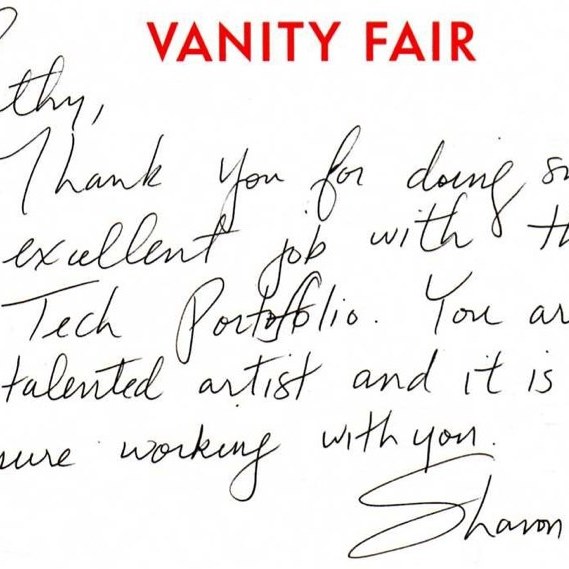 VANITY FAIR
thy,
Thank you for doing su
excellent job with th
Tech Portofolio. You ar
talented artist and it is
sure working with you.
Sharon